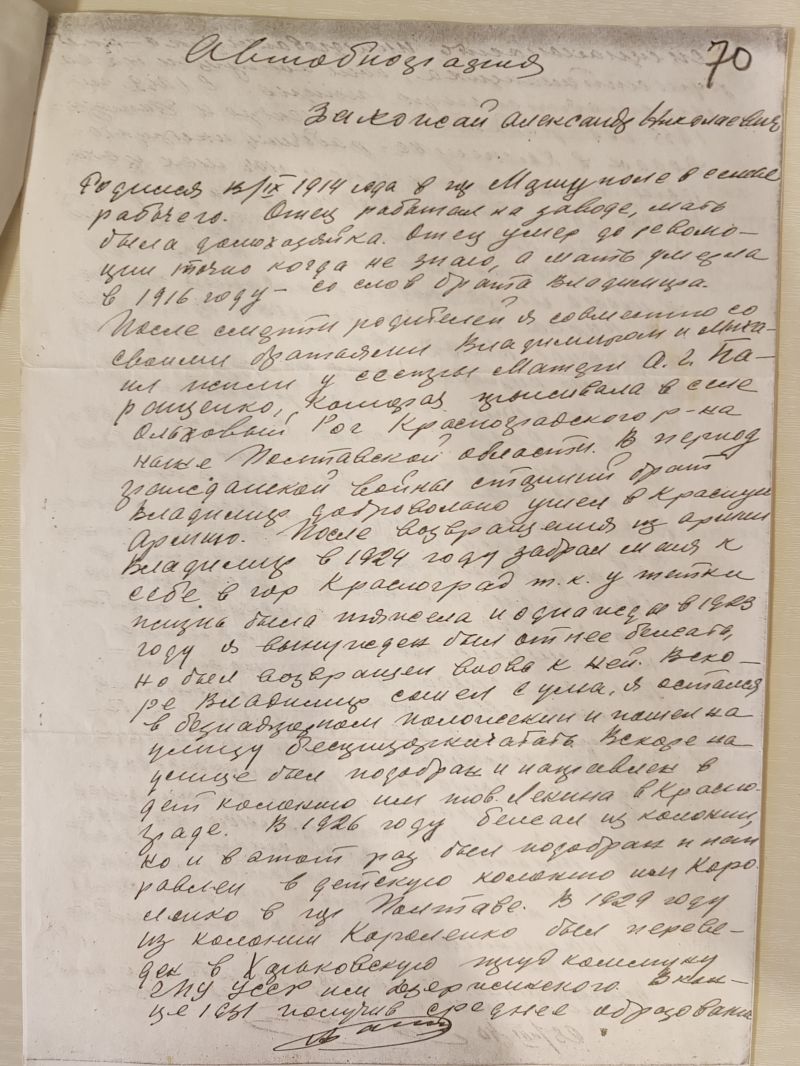 Автобиография
70
Александр Николаевич
Родился 15/IX 1914 года в гор Мариуполе в семье
рабочего. Отец работал на заводе, мать
была домохозяйка. Отец умер до револю-
ции точно когда не знаю, а мать умерла
в 1916 году – со слов брата Владимира.
После смерти родителей я совместно со
своими братьями Владимиром и Миха-
ил жили у сестры Матери А. Г. Па-
ращенко, Которая проживала в селе
Ольховый Рог Красноградского р-на
ныне Полтавской области. В период
гражданской войны старший брат
Владимир добровольно ушел в Красную
Армию. После возвращения из армии
Владимир в 1924 году забрал меня к
себе в гор Красноград т.к. у тетки
жизнь была тяжела и однажды в 1923
году я вынужден был от нее бежать,
но был возвращен вновь к ней. Вско-
ре Владимир сошел с ума, я остался
в безнадзорном положении и пошел на
улицу беспризорничать. Вскоре на
улице был подобран и направлен в
дет колонию им тов. Ленина в Красно-
граде. В 1926 году бежал из колонии
но и в этот раз был подобран и нап
равлен в детскую колонию им Коро
ленко в гор Полтаве. В 1929 году
из колонии Короленко был переве-
ден в Харьковскую труд коммуну
ГПУ УССР им Дзержинского. В кон-
це 1931 получив среднее образование